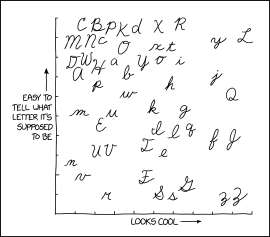 C B P K d X R
M N c O x t y L
D W H a Y o i
A b j
P w h Q
m u k g
E d l q f J
U V I e
n
v E S s G
r z z
EASY TO
TELL WHAT
LETTER IT'S
SUPPOSED
TO BE
LOOKS COOL